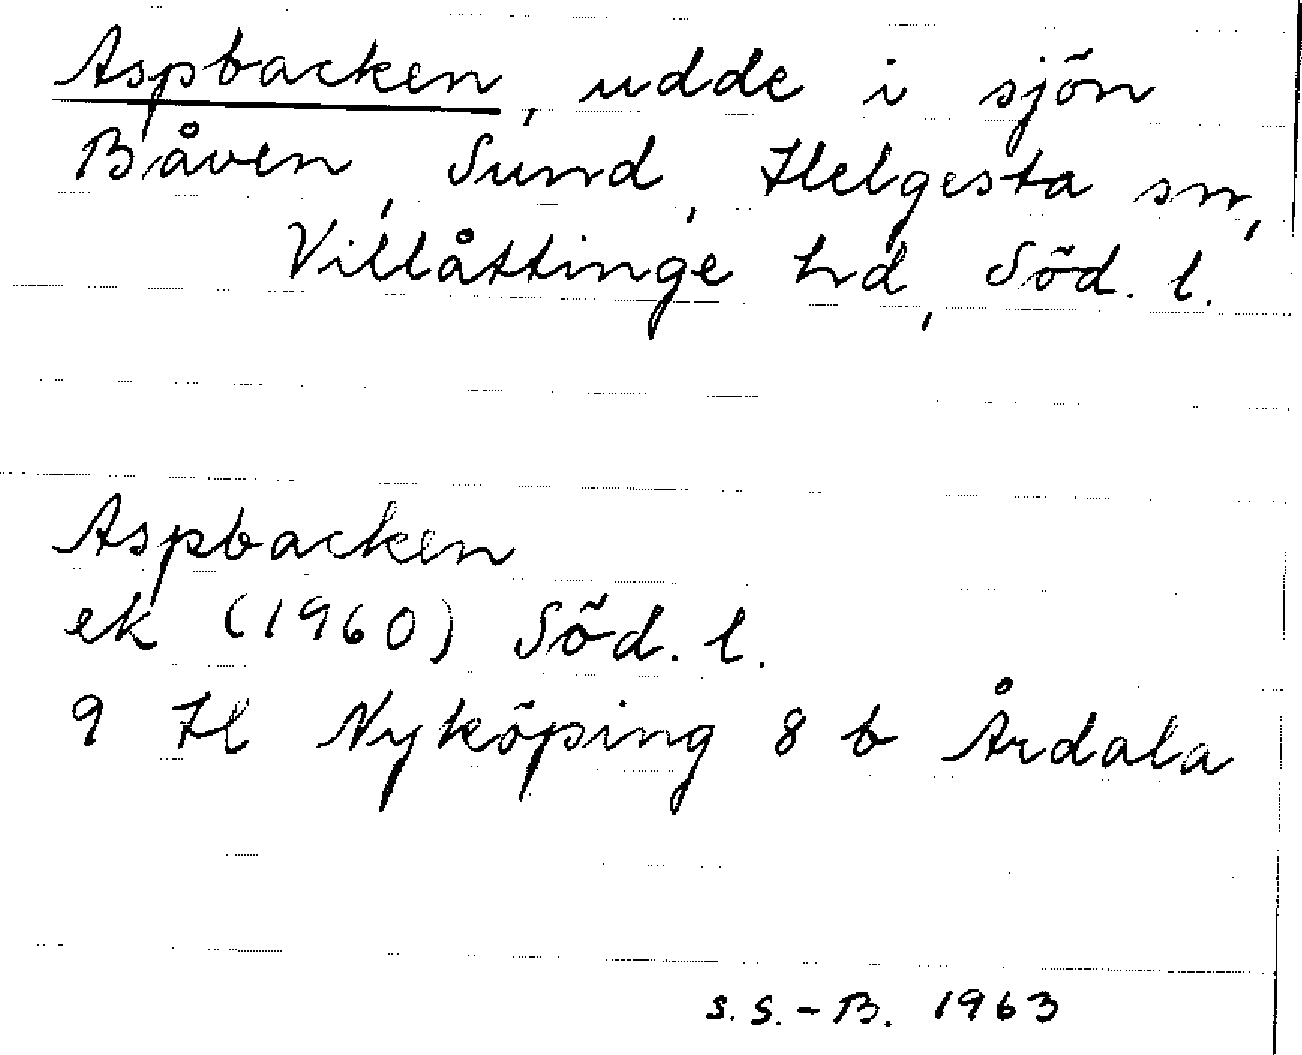 Aspbacken, udde i sjön
Båven, Sund, Helgesta sn,
Villåttinge hd, Söd. l.
Aspbacken
ek (1960) Söd. l.
9 H Nyköping 8 b Årdala
S. S.-B. 1963